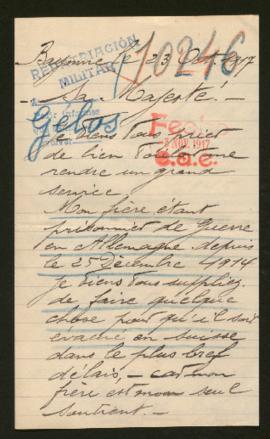 Bayonne le 23 Oct 1917
REMEDIACIÓN
MILITAR
10246
Sa Majesté! -
Gebos
NOV. 1917
C.a.e.
Je viens vous prier
de bien vouloir me
rendre un grand
service.
Mon frère étant
prisonnier de Guerre
en Allemagne depuis
le 25 Décembre 1914
je viens vous supplier
de faire quelque
chose pour qu'il soit
évacué en Suisse
dans le plus bref
délais, - car mon
frère est mon seul
soutient. -